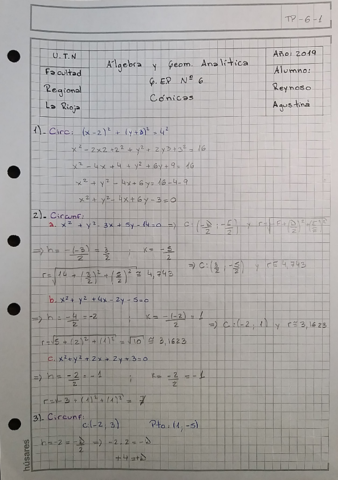 TP-6-1
U.T.N
Facultad
Regional
La Rioja
Álgebra y Geom. Analítica
G.EP. Nº 6
Cónicas
Año: 2019
Alumno:
Reynoso
Agustina
1)- Circ: (x-2)² + (y+3)² = 4²
x² - 2x2 + 2² + y² + 2y3 + 3² = 16
x² - 4x + 4 + y² + 6y + 9 = 16
x² + y² - 4x + 6y = 16 - 4 - 9
x² + y² - 4x + 6y - 3 = 0
2)- Circunf:
a. x² + y² - 3x + 5y - 14 = 0 ⇒ C:(-D/2, -E/2) y r=
⇒ h = -(-3)/2 = 3/2 ; k = -5/2 ⇒ C:(3/2, -5/2) y r ≅ 4,743
r = √(14 + (3/2)² + (5/2)²) ≅ 4,743
b. x² + y² + 4x - 2y - 5 = 0
⇒ h = -4/2 = -2 ; k = -(-2)/2 = 1 ⇒ C:(-2, 1) y r ≅ 3,1623
r = √(5 + (2)² + (1)²) = √10 ≅ 3,1623
c. x² + y² + 2x + 2y + 3 = 0
⇒ h = -2/2 = -1 ; k = -2/2 = -1
r = √(-3 + (1)² + (1)²) = ∄
3)- Circunf:
C(-2, 3) Pto. (1, -5)
h = -2 = -D/2 ⇒ -2.2 = -D
+4 = +D
músares